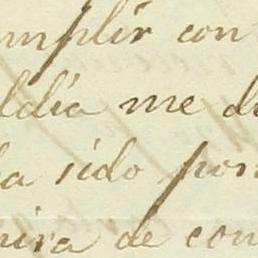 mplir con
ldia me d
a sido por
ira de con